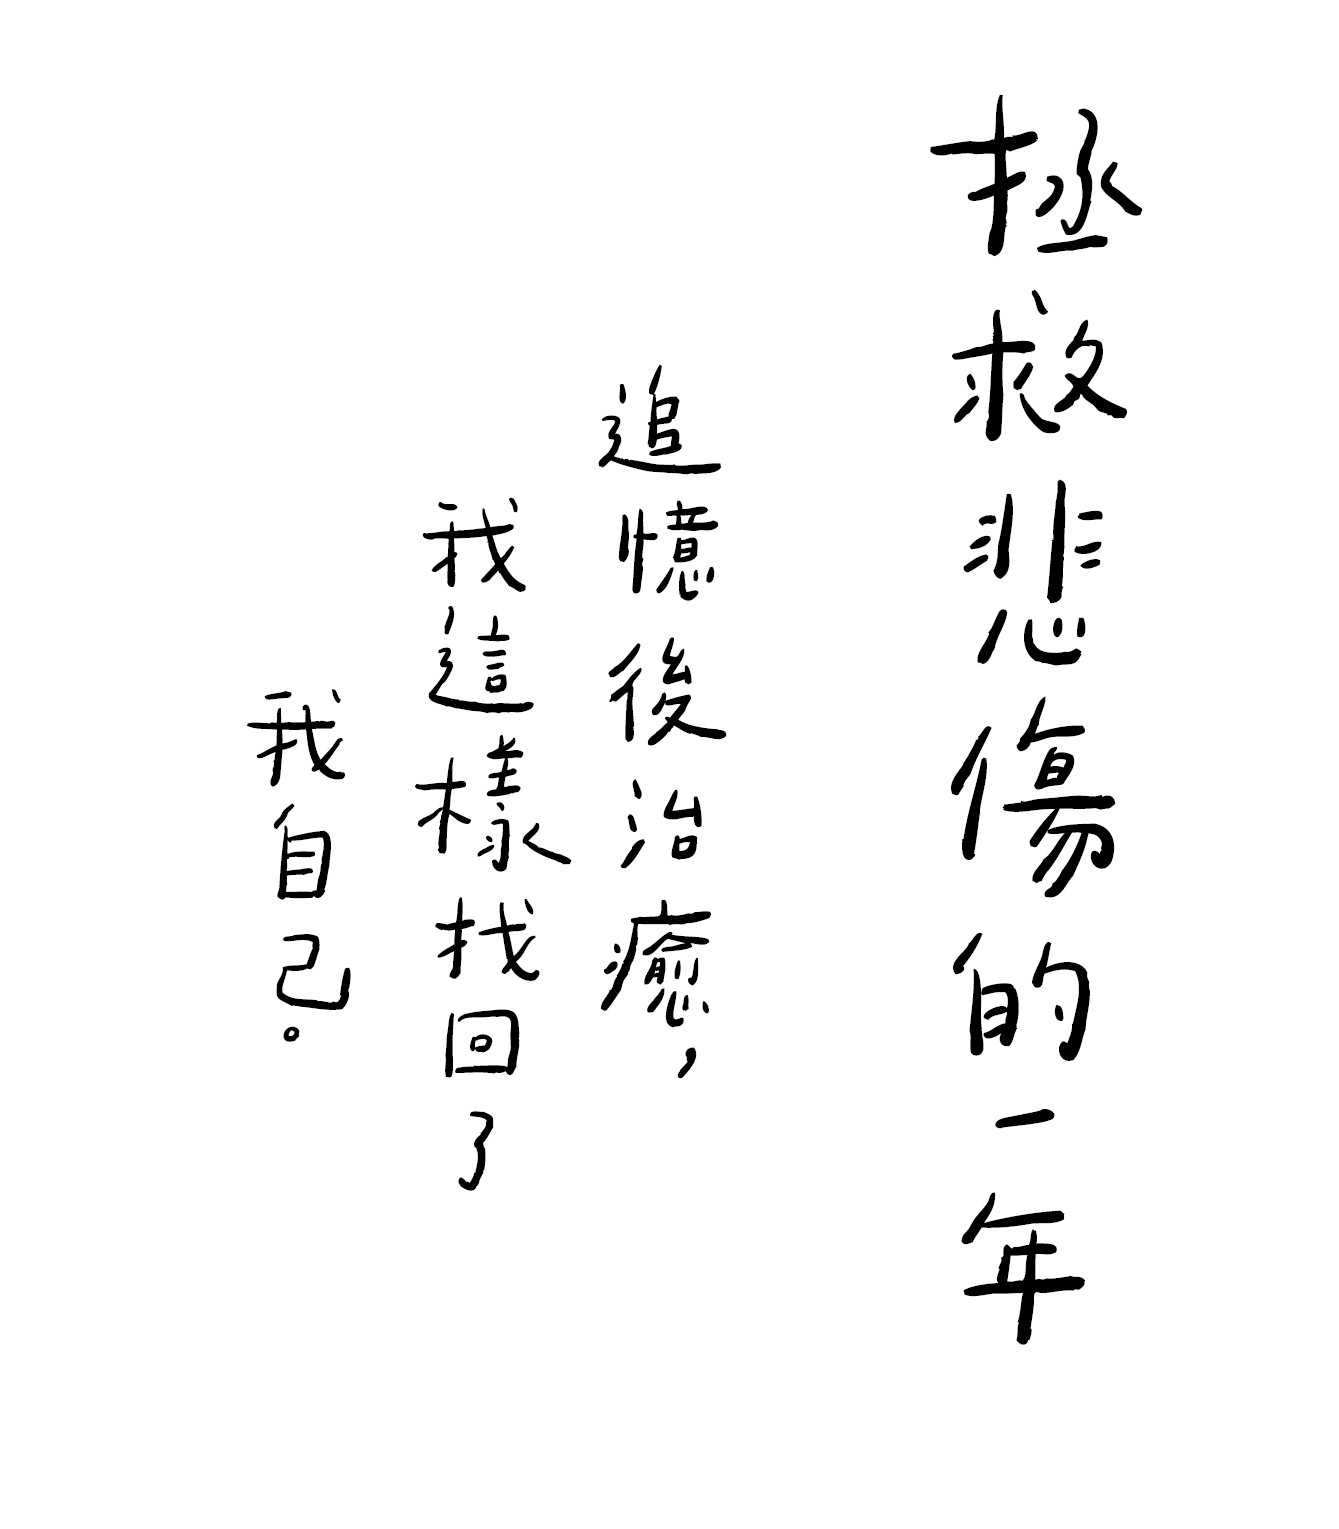 拯救悲傷的一年
追憶後治癒，
我這樣找回了
我自己。